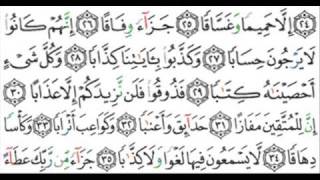 ٢٤ إِلَّا حَمِيمًا وَغَسَّاقًا ٢٥ جَزَآءً وِفَاقًا ٢٦ إِنَّهُمْ كَانُوا۟
لَا يَرْجُونَ حِسَابًا ٢٧ وَكَذَّبُوا۟ بِـَٔايَـٰتِنَا كِذَّابًا ٢٨ وَكُلَّ شَىْءٍ
أَحْصَيْنَـٰهُ كِتَـٰبًا ٢٩ فَذُوقُوا۟ فَلَن نَّزِيدَكُمْ إِلَّا عَذَابًا ٣٠
إِنَّ لِلْمُتَّقِينَ مَفَازًا ٣١ حَدَآئِقَ وَأَعْنَـٰبًا ٣٢ وَكَوَاعِبَ أَتْرَابًا ٣٣ وَكَأْسًا
دِهَاقًا ٣٤ لَّا يَسْمَعُونَ فِيهَا لَغْوًا وَلَا كِذَّٰبًا ٣٥ جَزَآءً مِّن رَّبِّكَ عَطَآءً